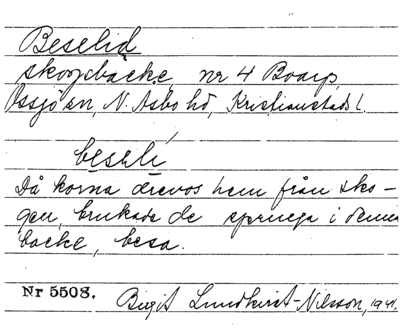 Beselid
skogsbacke nr 4 Boarp,
Össjö sn, N. Åsbo hd, Kristianstads l.
beseli
Då korna drevos hem från sko-
gen, brukade de springa i denna
backe, besa.
Nr 5508.
Birgit Lundkvist-Nilsson, 1941.